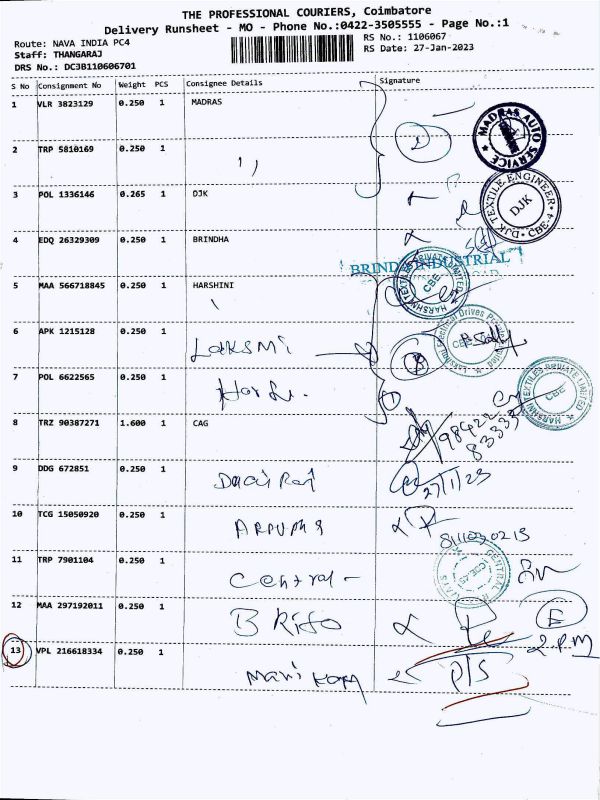 THE PROFESSIONAL COURIERS, Coimbatore
Delivery Runsheet - MO - Phone No.:0422-3505555 - Page No.:1
Route: NAVA INDIA PC4
RS No.: 1106067
Staff: THANGARAJ
RS Date: 27-Jan-2023
DRS No.: DC3B110606701
S No Consignment No Weight PCS Consignee Details Signature
1 VLR 3823129 0.250 1 MADRAS
MADRAS AUTO SERVICE
2 TRP 5810169 0.250 1 ,,
3 POL 1336146 0.265 1 DJK
DJK TEXTILE ENGINEER DJK CBE-4
4 EDQ 26329309 0.250 1 BRINDHA
BRINDA INDUSTRIAL
5 MAA 566718845 0.250 1 HARSHINI
HARSHNI TEXTILES PRIVATE LIMITED CBE
6 APK 1215128 0.250 1 Laksmi
7 POL 6622565 0.250 1
HARSHNI TEXTILES PRIVATE LIMITED CBE
8 TRZ 90387271 1.600 1 CAG
98422
83333
9 DDG 672851 0.250 1
27/1/23
10 TCG 15050920 0.250 1
11 TRP 7901104 0.250 1 Central -
12 MAA 297192011 0.250 1 BRito
E
2 PM
13 VPL 216618334 0.250 1